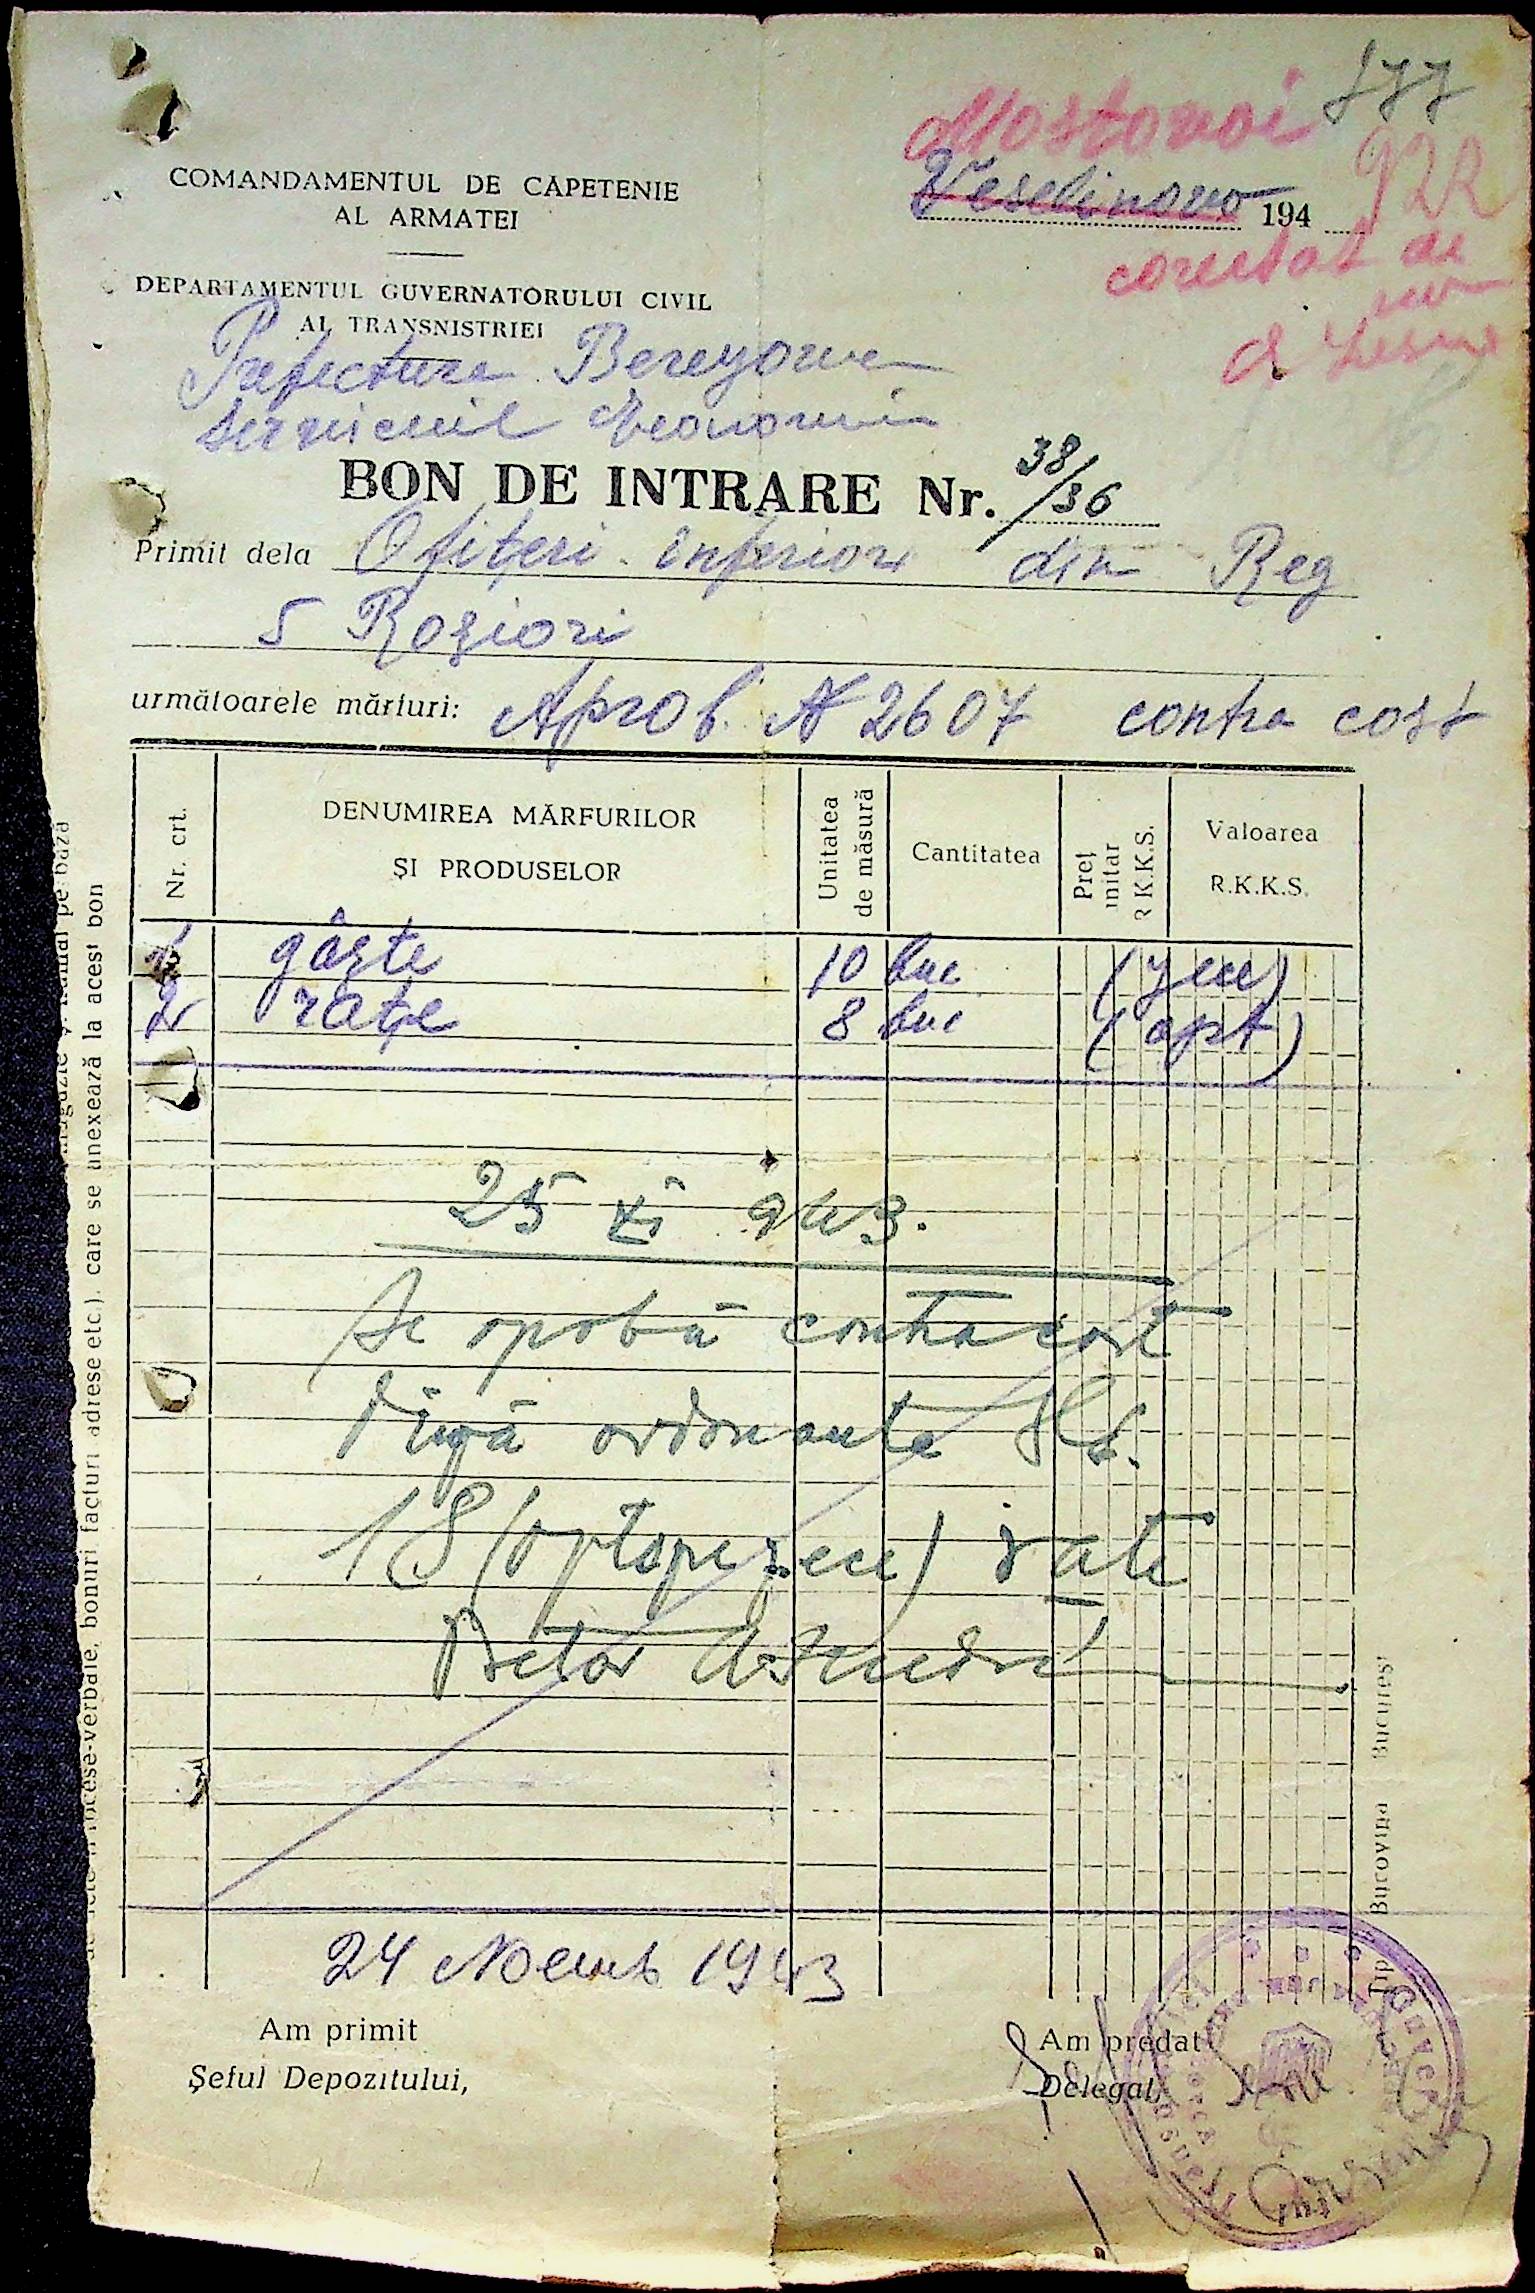 777
Mostovoi
Veselinovo 194
922
corectat de
COMANDAMENTUL DE CĂPETENIE
AL ARMATEI
DEPARTAMENTUL GUVERNATORULUI CIVIL
AL TRANSNISTRIEI
Prefectura Berezovca
Serviciul Economic
BON DE INTRARE Nr. 38/36
Primit dela Ofițeri inferiori din Reg
5 Roșiori
următoarele mărfuri: Aprob. N 2607 contra cost
Nr. crt. DENUMIREA MĂRFURILOR ȘI PRODUSELOR Unitatea de măsură Cantitatea Preț unitar R.K.K.S. Valoarea R.K.K.S.
1 gâște 10 buc (zece)
2 rațe 8 buc (opt)
25 XI 943.
Se aprobă contra cost
după ordonanta
18 (optsprezece) rate
Pretor
24 Noemb 1943
Am primit
Șeful Depozitului,
Am predat
Delegat,
care se anexează la acest bon
procese-verbale, bonuri facturi adrese etc.).
Tip. Bucovina București